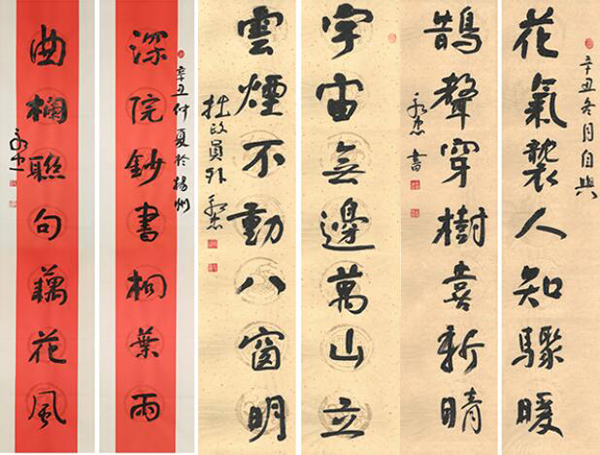 辛丑冬月自興
花氣襲人知驟暖
鵲聲穿樹喜新晴
書
宇宙無邊萬山立
雲煙不動八窗明
拙政員外
深院鈔書桐葉雨
辛丑仲夏於揚州
曲欄聯句藕花風